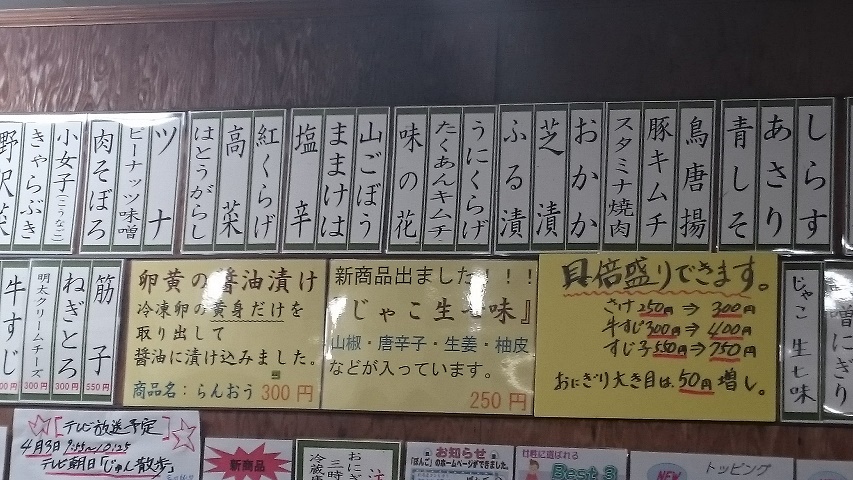 しらす
あさり
青しそ
鳥唐揚
豚キムチ
スタミナ焼肉
おかか
芝漬
ふる漬
うにくらげ
たくあんキムチ
味の花
山ごぼう
ままけは
塩辛
紅くらげ
高菜
はとうがらし
ツナ
ピーナッツ味噌
肉そぼろ
小女子(こうなご)
きゃらぶき
野沢菜
じゃこ生七味
具倍盛りできます。
さけ250円⇒300円
牛すじ300円⇒400円
すじ子550円⇒750円
おにぎり大き目は、50円増し。
新商品出ました!!!
『じゃこ生七味』
山椒・唐辛子・生姜・柚皮
などが入っています。
250円
卵黄の醤油漬け
冷凍卵の黄身だけを
取り出して
醤油に漬け込みました。
商品名:らんおう 300円
筋子
550円
ねぎとろ
300円
明太クリームチーズ
300円
牛すじ
テレビ放送予定
4月3日 9:55〜10:25
テレビ朝日「じゅん散歩」
新商品
お知らせ
「ぼんご」のホームページができました。
女性に選ばれる
Best 3
NEW
トッピング
NEW